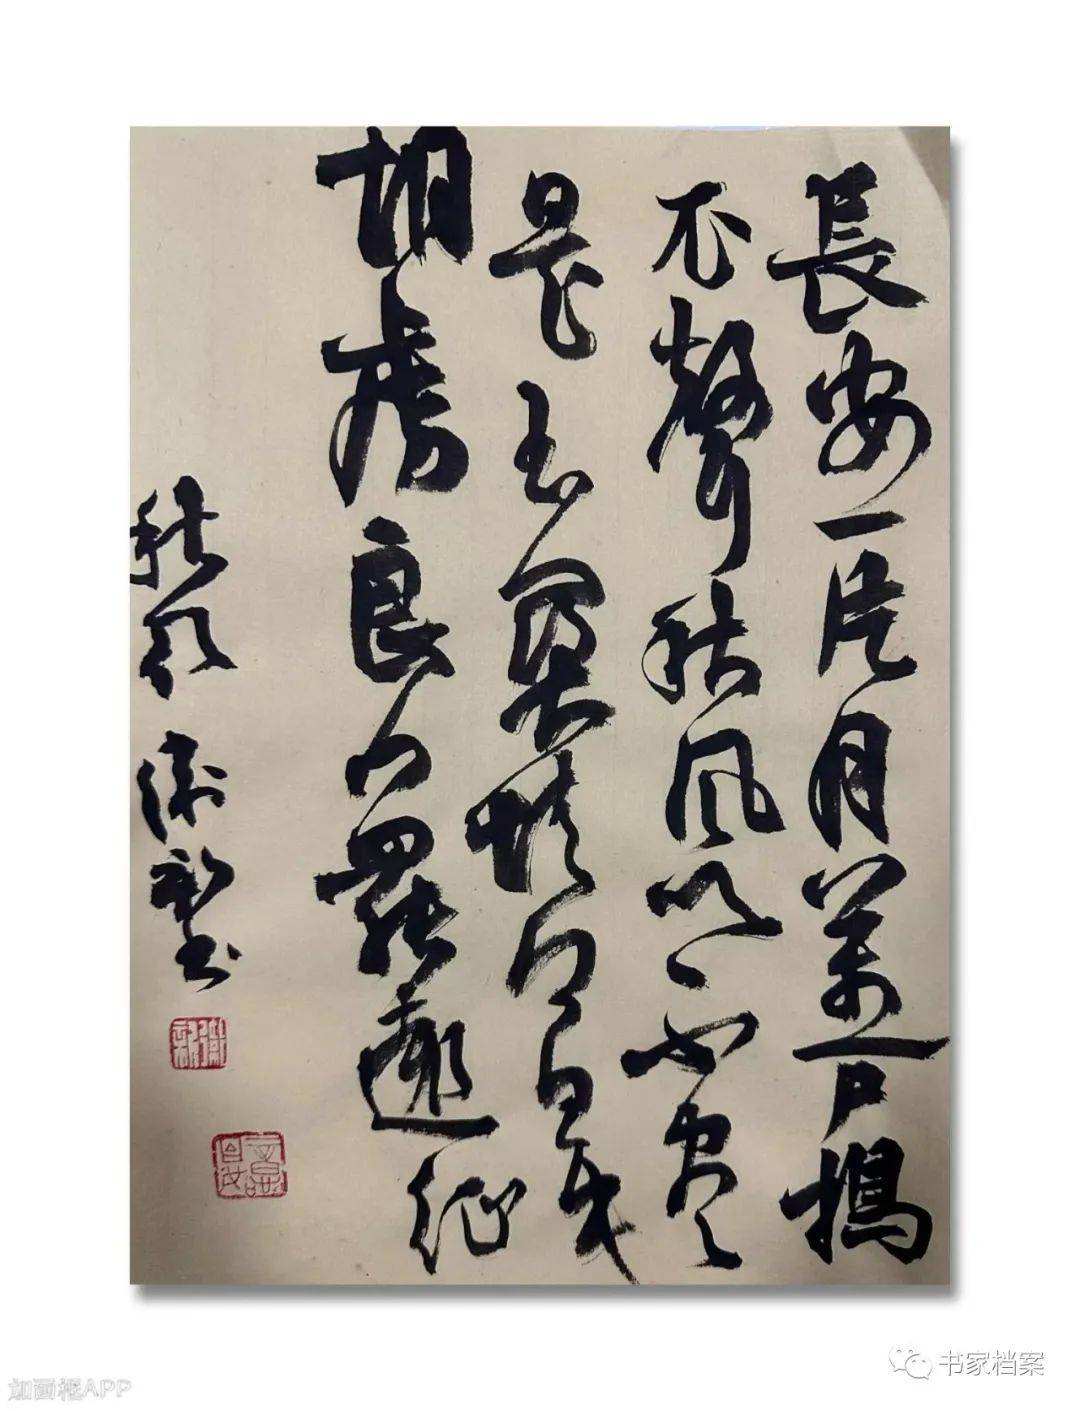 長安一片月萬戶搗
衣聲秋風吹不盡
是玉関情何日平
胡虜良人罷遠征
秋 衛新书
衛新
书家档案
加画框APP